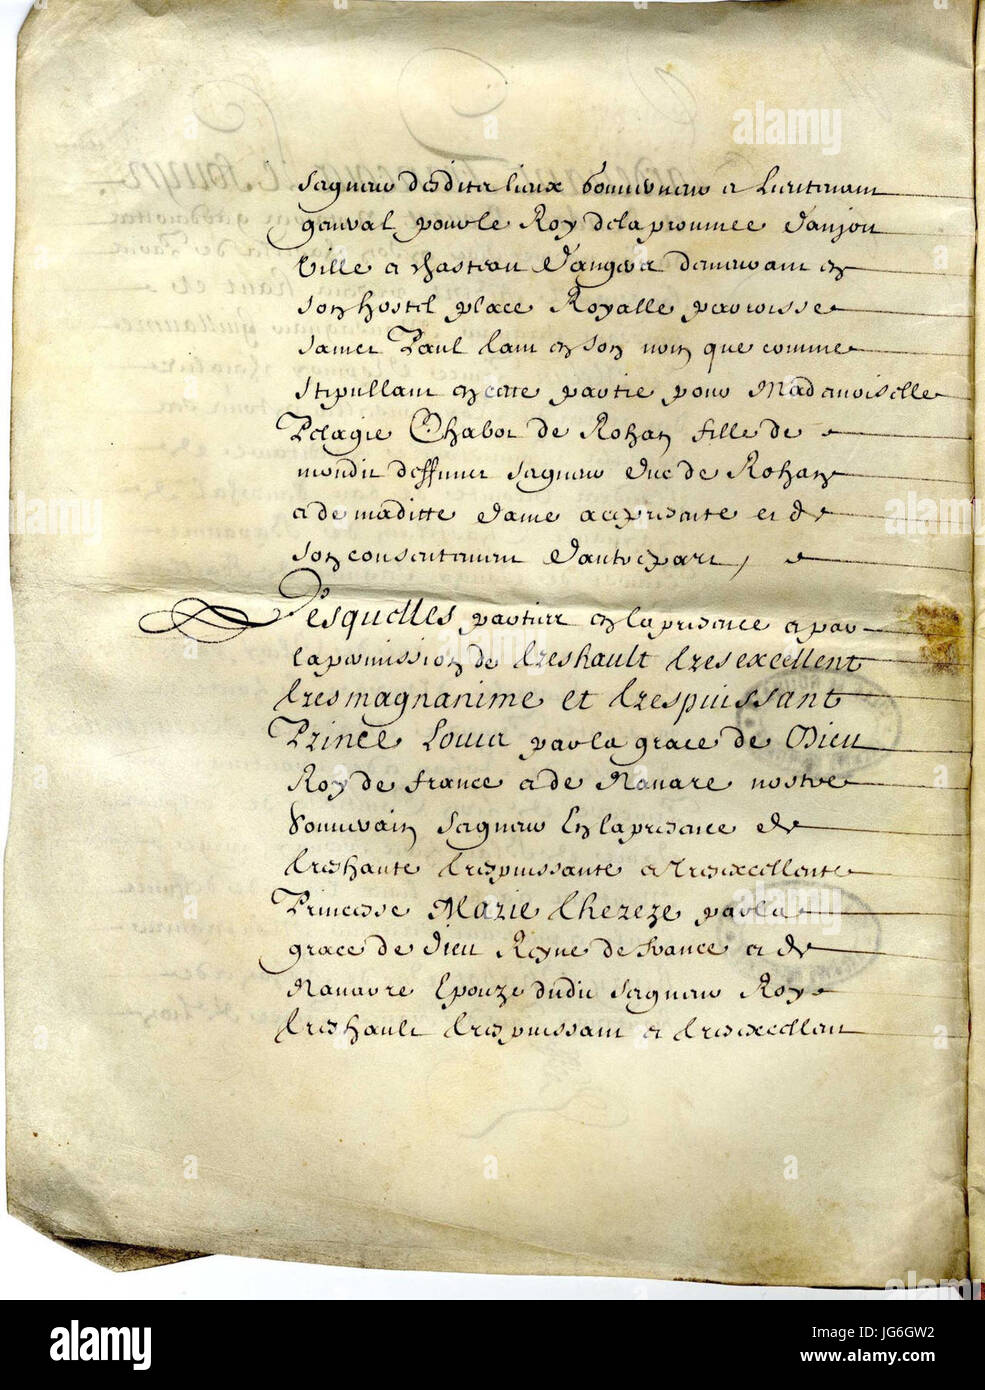 Seigneur desdits lieux Gouverneur et Lieutenant
general pour le Roy de la province d'anjou
Ville et chasteau d'angers demeurant en
son hostel place Royalle parroisse
sainct Paul tant en son nom que comme
stipullant en cette partie pour Mademoiselle
Pelagie Chabot de Rohan fille de
mondit deffunct seigneur duc de Rohan
et de maditte dame a ce presente et de
son consentement d'autre part,
Lesquelles parties en la presence et par
la permission de tres hault tres excellent
tres magnanime et tres puissant
Prince Louis par la grace de Dieu
Roy de france et de Navare nostre
Souverain seigneur En la presence de
tres haute tres puissante et tres excellente
Princesse Marie thereze par la
grace de dieu Reyne de france et de
Navarre Epouze dudit seigneur Roy
tres hault tres puissant et tres excellent
alamy
www.alamy.com
JG6GW2